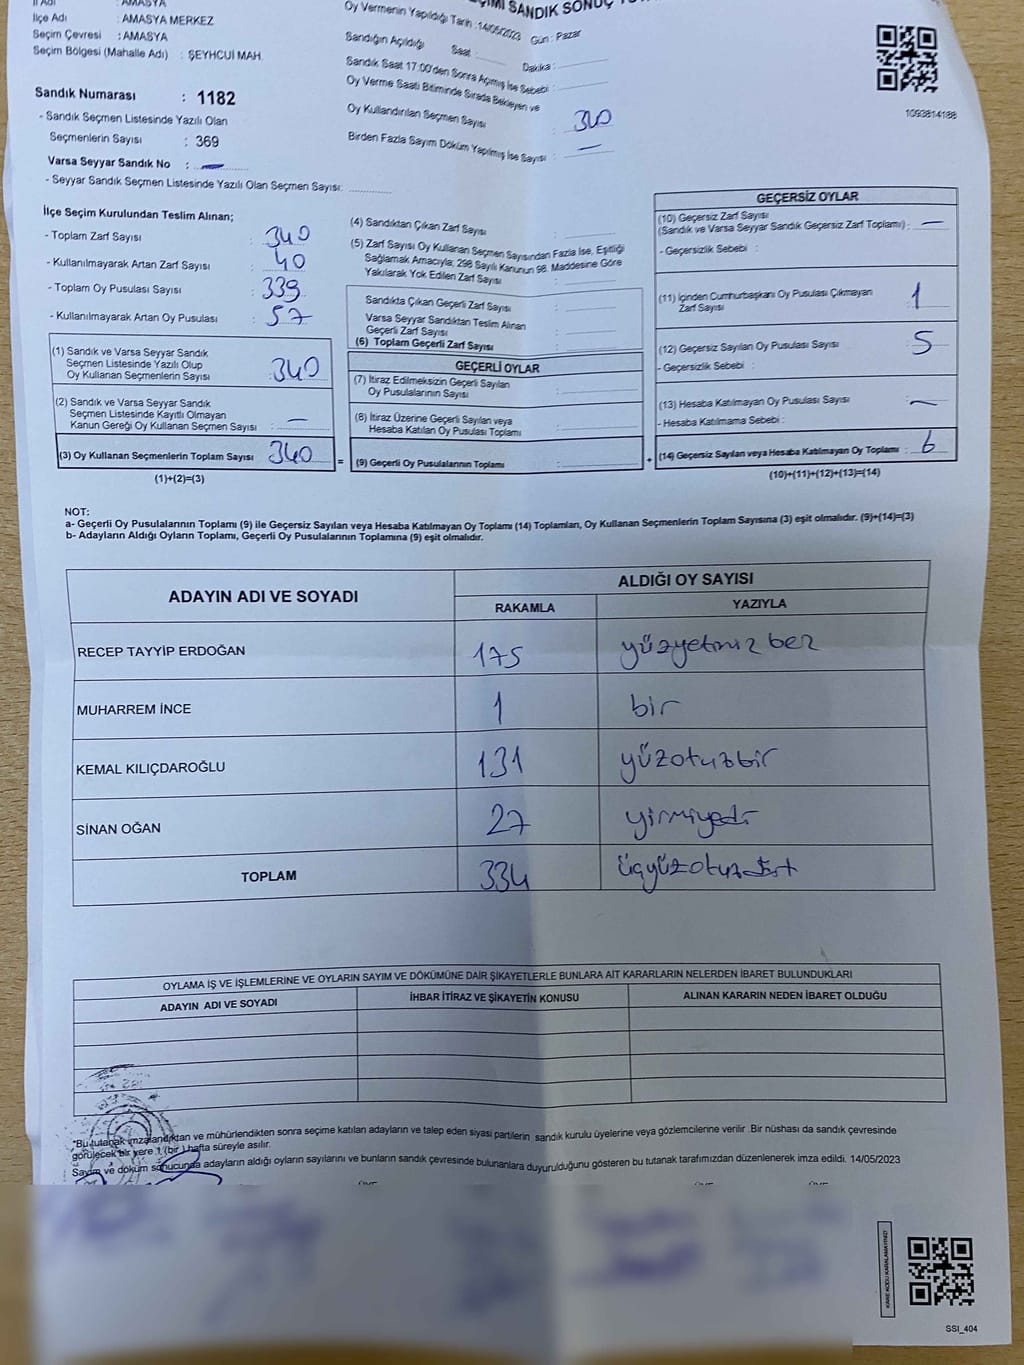 İl Adı : AMASYA
İlçe Adı : AMASYA MERKEZ
Seçim Çevresi : AMASYA
Seçim Bölgesi (Mahalle Adı) : ŞEYHCUİ MAH.
Sandık Numarası : 1182
- Sandık Seçmen Listesinde Yazılı Olan
Seçmenlerin Sayısı : 369
Varsa Seyyar Sandık No : —
- Seyyar Sandık Seçmen Listesinde Yazılı Olan Seçmen Sayısı:
SANDIK SONUÇ
Oy Vermenin Yapıldığı Tarih :14/05/2023 Gün : Pazar
Sandığın Açıldığı Saat : Dakika :
Sandık Saat 17:00'den Sonra Açılmış İse Sebebi :
Oy Verme Saati Bitiminde Sırada Bekleyen ve
Oy Kullandırılan Seçmen Sayısı : 340
Birden Fazla Sayım Döküm Yapılmış İse Sayısı : —
1093814188
İlçe Seçim Kurulundan Teslim Alınan;
- Toplam Zarf Sayısı : 340
- Kullanılmayarak Artan Zarf Sayısı : 40
- Toplam Oy Pusulası Sayısı : 339
- Kullanılmayarak Artan Oy Pusulası : 57
(1) Sandık ve Varsa Seyyar Sandık
Seçmen Listesinde Yazılı Olup
Oy Kullanan Seçmenlerin Sayısı : 340
(2) Sandık ve Varsa Seyyar Sandık
Seçmen Listesinde Kayıtlı Olmayan
Kanun Gereği Oy Kullanan Seçmen Sayısı : —
(3) Oy Kullanan Seçmenlerin Toplam Sayısı 340
(1)+(2)=(3)
(4) Sandıktan Çıkan Zarf Sayısı :
(5) Zarf Sayısı Oy Kullanan Seçmen Sayısından Fazla İse, Eşitliği
Sağlamak Amacıyla; 298 Sayılı Kanunun 98. Maddesine Göre
Yakılarak Yok Edilen Zarf Sayısı :
Sandıkta Çıkan Geçerli Zarf Sayısı :
Varsa Seyyar Sandıktan Teslim Alınan
Geçerli Zarf Sayısı :
(6) Toplam Geçerli Zarf Sayısı :
GEÇERLİ OYLAR
(7) İtiraz Edilmeksizin Geçerli Sayılan
Oy Pusulalarının Sayısı :
(8) İtiraz Üzerine Geçerli Sayılan veya
Hesaba Katılan Oy Pusulası Toplamı :
= (9) Geçerli Oy Pusulalarının Toplamı :
GEÇERSİZ OYLAR
(10) Geçersiz Zarf Sayısı
(Sandık ve Varsa Seyyar Sandık Geçersiz Zarf Toplamı) : —
- Geçersizlik Sebebi :
(11) İçinden Cumhurbaşkanı Oy Pusulası Çıkmayan
Zarf Sayısı : 1
(12) Geçersiz Sayılan Oy Pusulası Sayısı : 5
- Geçersizlik Sebebi :
(13) Hesaba Katılmayan Oy Pusulası Sayısı : —
- Hesaba Katılmama Sebebi :
+ (14) Geçersiz Sayılan veya Hesaba Katılmayan Oy Toplamı : 6
(10)+(11)+(12)+(13)=(14)
NOT:
a- Geçerli Oy Pusulalarının Toplamı (9) ile Geçersiz Sayılan veya Hesaba Katılmayan Oy Toplamı (14) Toplamları, Oy Kullanan Seçmenlerin Toplam Sayısına (3) eşit olmalıdır. (9)+(14)=(3)
b- Adayların Aldığı Oyların Toplamı, Geçerli Oy Pusulalarının Toplamına (9) eşit olmalıdır.
ADAYIN ADI VE SOYADI ALDIĞI OY SAYISI
RAKAMLA YAZIYLA
RECEP TAYYİP ERDOĞAN 175 yüzyetmiz bez
MUHARREM İNCE 1 bir
KEMAL KILIÇDAROĞLU 131 yüzotuzbir
SİNAN OĞAN 27 yirmiyedi
TOPLAM 334 üçyüzotuzdört
OYLAMA İŞ VE İŞLEMLERİNE VE OYLARIN SAYIM VE DÖKÜMÜNE DAİR ŞİKAYETLERLE BUNLARA AİT KARARLARIN NELERDEN İBARET BULUNDUKLARI
ADAYIN ADI VE SOYADI İHBAR İTİRAZ VE ŞİKAYETİN KONUSU ALINAN KARARIN NEDEN İBARET OLDUĞU
*Bu tutanak imzalandıktan ve mühürlendikten sonra seçime katılan adayların ve talep eden siyasi partilerin sandık kurulu üyelerine veya gözlemcilerine verilir .Bir nüshası da sandık çevresinde
görülecek bir yere 1 (bir ) hafta süreyle asılır.
Sayım ve döküm sonucunda adayların aldığı oyların sayılarını ve bunların sandık çevresinde bulunanlara duyurulduğunu gösteren bu tutanak tarafımızdan düzenlenerek imza edildi. 14/05/2023
KARE KODU KARALAMAYINIZ!
SSI_404